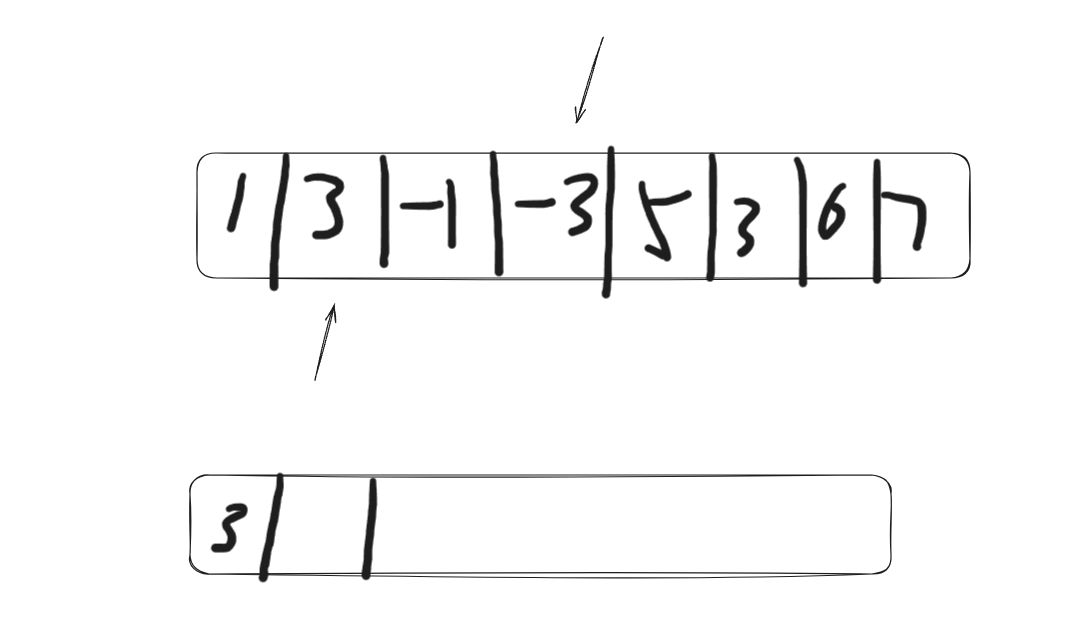 1 | 3 | -1 | -3 | 5 | 3 | 6 | 7
3 | |